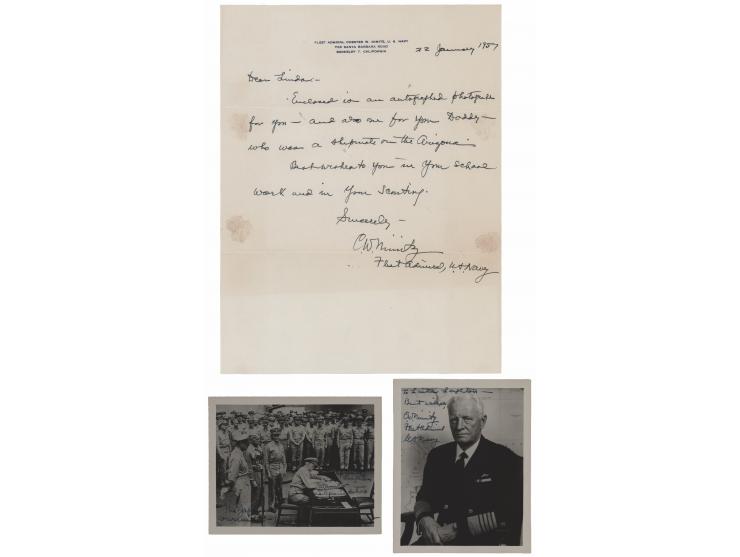 FLEET ADMIRAL CHESTER W. NIMITZ, U. S. NAVY
728 SANTA BARBARA ROAD
BERKELEY 7, CALIFORNIA
22 January 1957
Dear Linda -
Enclosed is an autographed photograph
for you - and also one for your Daddy -
who was a shipmate on the Arizona.
Best wishes to you in your school
work and in your Scouting.
Sincerely -
C.W. Nimitz
Fleet Admiral, U.S. Navy
To Linda
Best wishes
C.W. Nimitz
Fleet Admiral
U.S. Navy